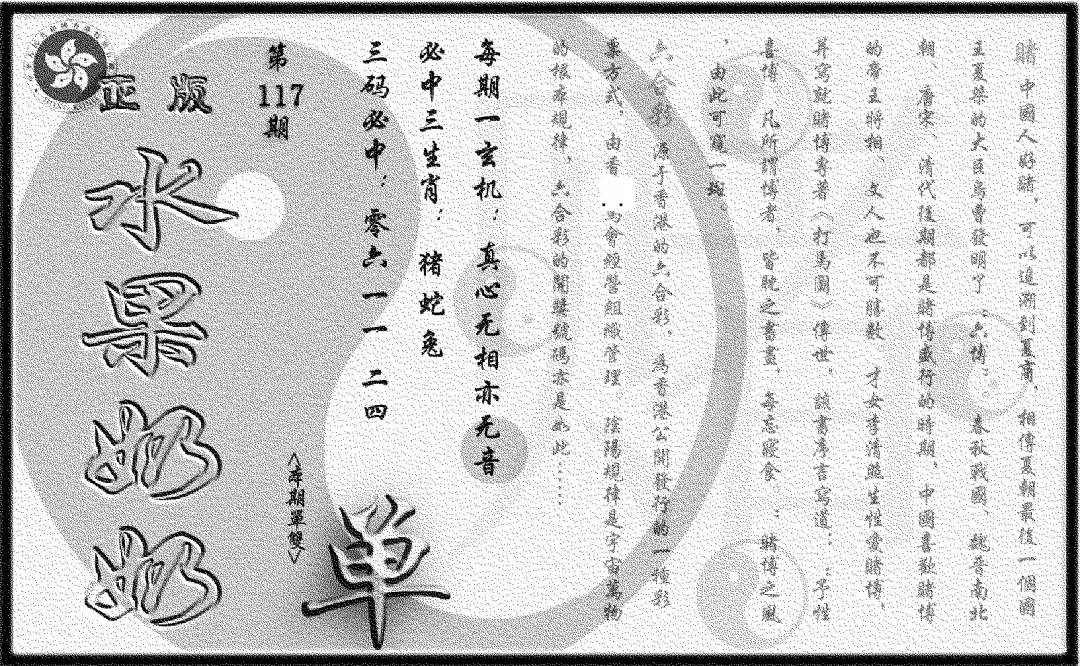 賭 中國人好賭，可以追溯到夏商，相傳夏朝最後一個國
王夏桀的大臣烏曹發明了：六博：。春秋戰國、魏晉南北
朝、唐宋、清代後期都是賭博盛行的時期，中國喜歡賭博
的帝王將相 文人也不可勝數 才女李清照生性愛賭博，
并寫就賭博專著〈打馬圖〉傳世。該書序言寫道：：予性
喜博 凡所謂博者，皆耽之書晝，每忘寢食 ：賭博之風
，由此可窺一斑。
六合彩 源于香港的六合彩，為香港公開發行的一種彩
票方式，由香 馬會經營組織管理。陰陽規律是宇宙萬物
的根本規律，六合彩的開獎號碼亦是如此......
每期一玄机：真心无相亦无音
必中三生肖：猪蛇兔
三码必中：零六一一二四
第117期
〈本期單雙〉
单
正版
水果奶奶